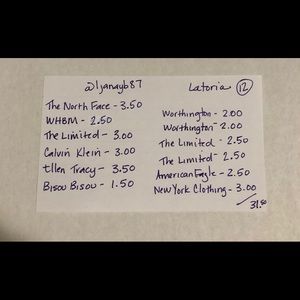 @ljanay687
Latoria 12
The North Face - 3.50
WHBM - 2.50
The Limited - 3.00
Calvin Klein - 3.00
Ellen Tracy - 3.50
Bisou Bisou - 1.50
Worthington - 2.00
Worthington - 2.00
The Limited - 2.50
The Limited - 2.50
American Eagle - 2.50
New York Clothing - 3.00
31.50